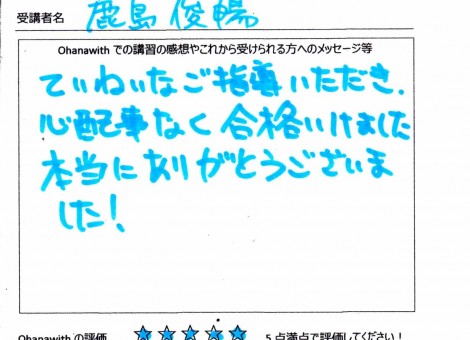 受講者名 鹿島 俊暢
Ohanawith での講習の感想やこれから受けられる方へのメッセージ等
ていねいなご指導いただき、
心配事なく合格いけました
本当にありがとうございま
した!
Ohanawith の評価 ☆☆☆☆☆ 5 点満点で評価してください!